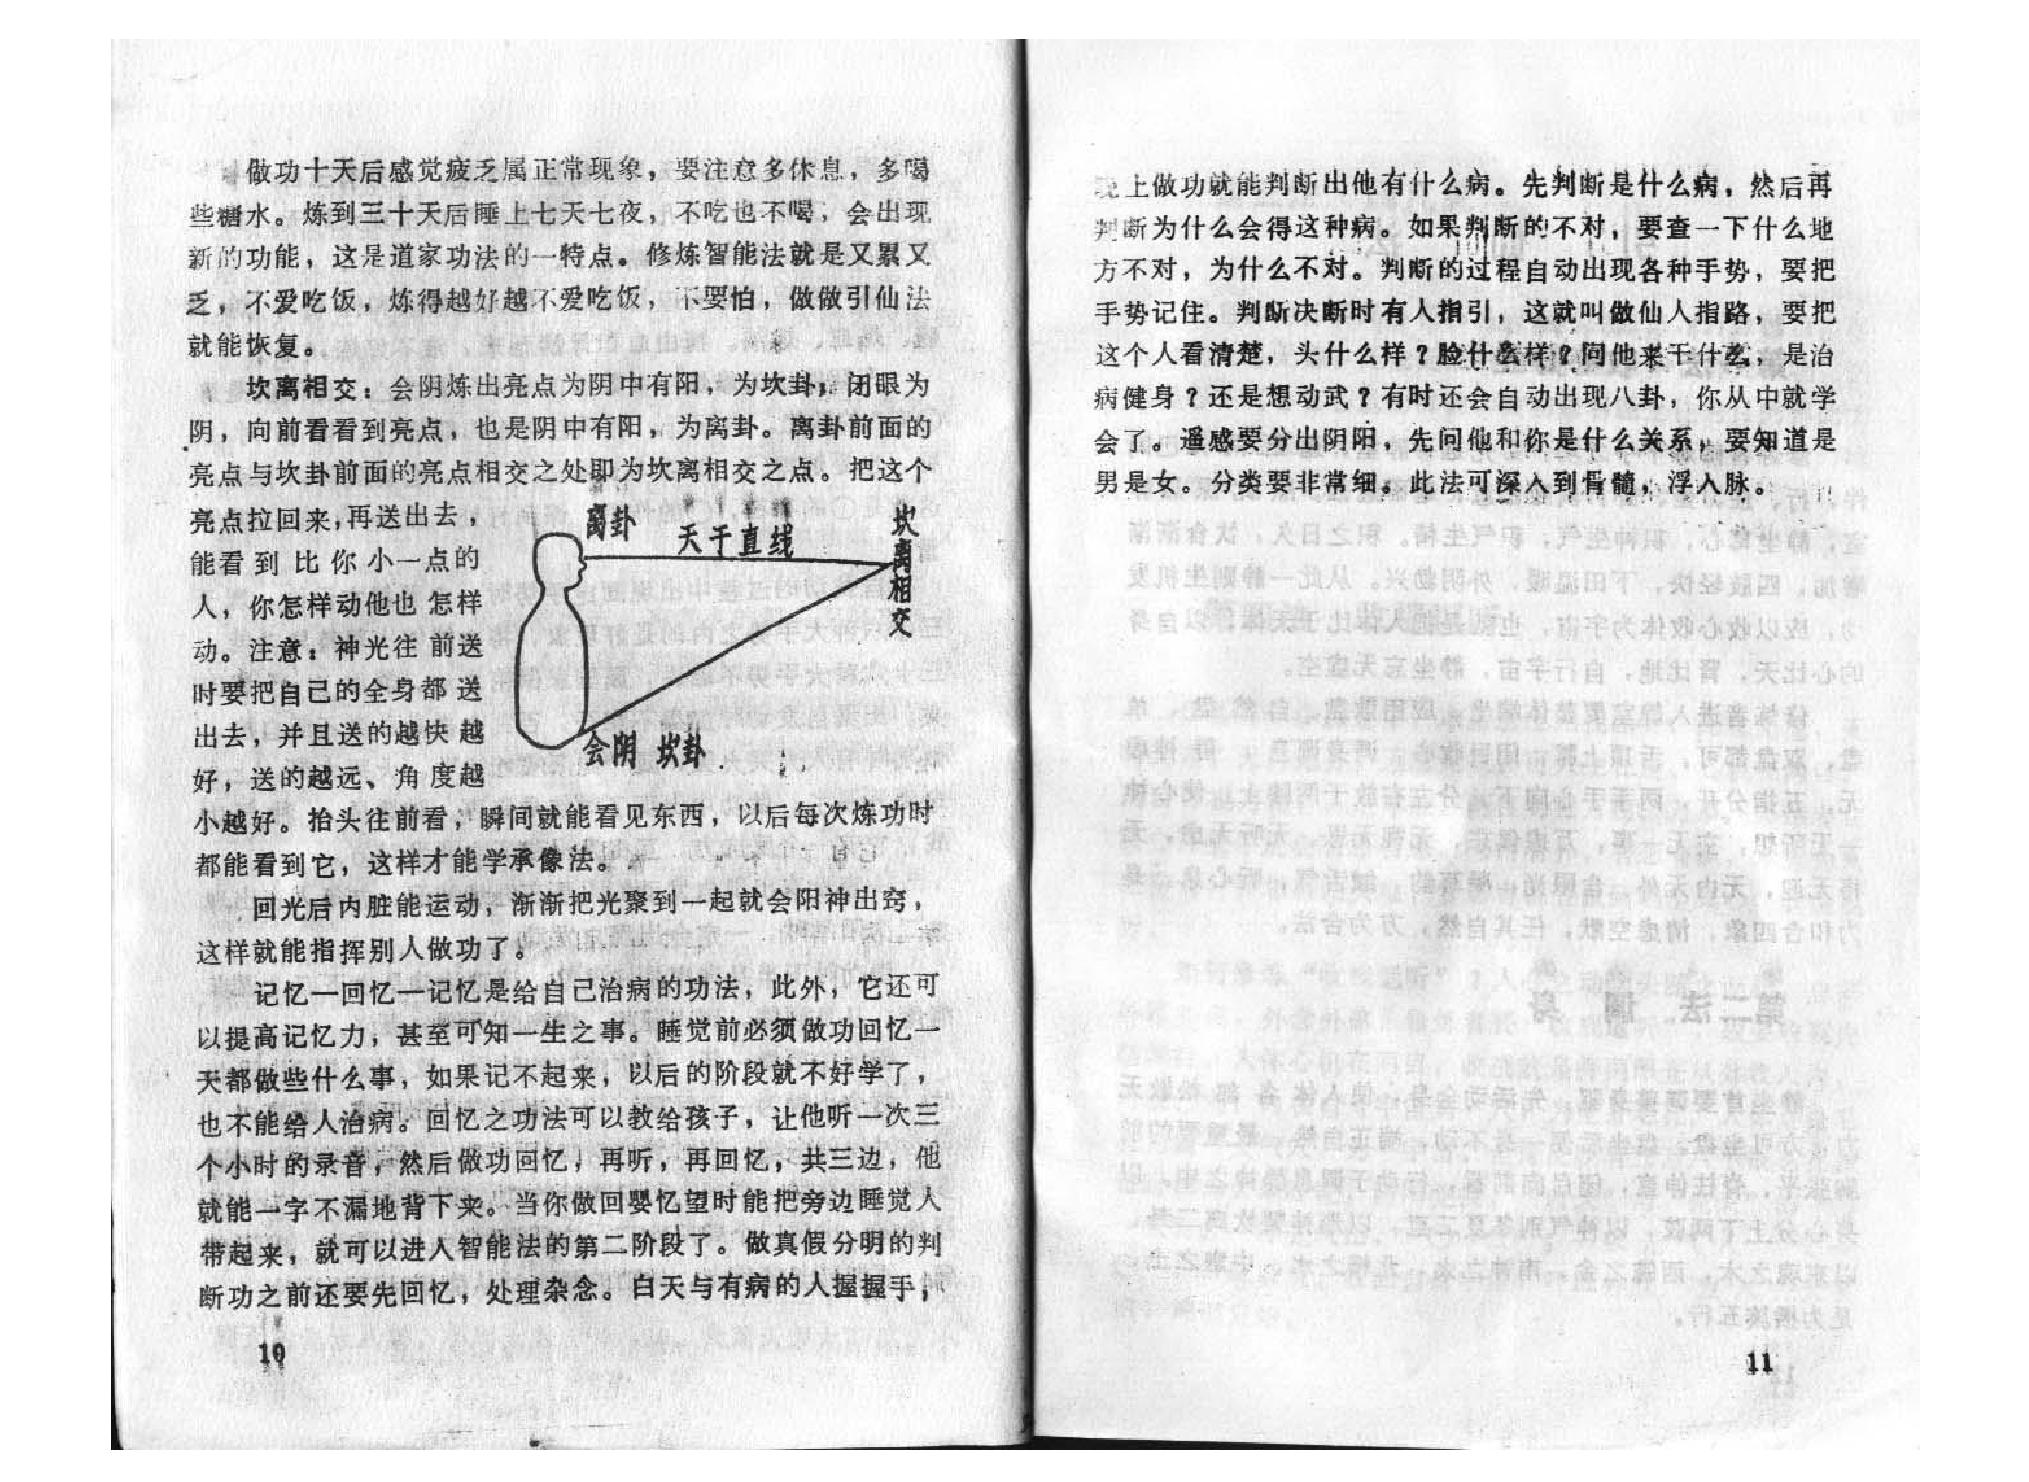 做功十天后感觉疲乏属正常现象，要注意多休息，多喝
些糖水。炼到三十天后睡上七天七夜，不吃也不喝，会出现
新的功能，这是道家功法的一特点。修炼智能法就是又累又
乏，不爱吃饭，炼得越好越不爱吃饭，不要怕，做做引仙法
就能恢复。
坎离相交：会阴炼出亮点为阴中有阳，为坎卦；闭眼为
阴，向前看看到亮点，也是阴中有阳，为离卦。离卦前面的
亮点与坎卦前面的亮点相交之处即为坎离相交之点。把这个
亮点拉回来，再送出去，
能看到比你小一点的
人，你怎样动他也怎样
动。注意：神光往前送
时要把自己的全身都送
出去，并且送的越快越
好，送的越远、角度越
离卦
天干直线
坎离相交
会阴 坎卦
小越好。抬头往前看，瞬间就能看见东西，以后每次炼功时
都能看到它，这样才能学承像法。
回光后内脏能运动，渐渐把光聚到一起就会阳神出窍，
这样就能指挥别人做功了。
记忆—回忆—记忆是给自己治病的功法，此外，它还可
以提高记忆力，甚至可知一生之事。睡觉前必须做功回忆一
天都做些什么事，如果记不起来，以后的阶段就不好学了，
也不能给人治病。回忆之功法可以教给孩子，让他听一次三
个小时的录音，然后做功回忆，再听，再回忆，共三边，他
就能一字不漏地背下来。当你做回婴忆望时能把旁边睡觉人
带起来，就可以进入智能法的第二阶段了。做真假分明的判
断功之前还要先回忆，处理杂念。白天与有病的人握握手，
10
晚上做功就能判断出他有什么病。先判断是什么病，然后再
判断为什么会得这种病。如果判断的不对，要查一下什么地
方不对，为什么不对。判断的过程自动出现各种手势，要把
手势记住。判断决断时有人指引，这就叫做仙人指路，要把
这个人看清楚，头什么样？脸什么样？问他来干什么，是治
病健身？还是想动武？有时还会自动出现八卦，你从中就学
会了。遥感要分出阴阳，先问他和你是什么关系，要知道是
男是女。分类要非常细，此法可深入到骨髓，浮入脉。
11